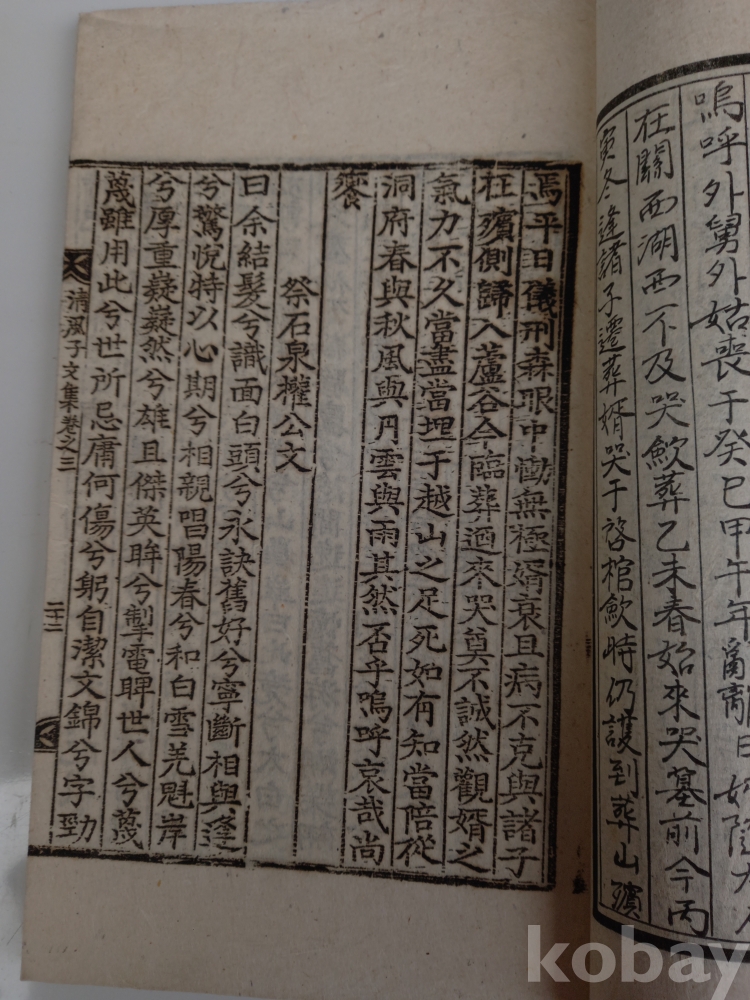 嗚呼外舅外姑喪于癸巳甲午年
在關西湖西不及哭歛葬乙未春始來哭墓前今丙
寅冬逢諸子遷葬婿哭于啓棺歛時仍護到葬山殯
焉平日儀刑森眼中慟無極婿衰且病不克與諸子
在殯側歸入蘆谷今臨葬迴來哭奠不誠然觀婿之
氣力不久當盡當埋于越山之足死如有知當陪從
洞府春與秋風與月雲與雨其然否乎嗚呼哀哉尚
饗
祭石泉權公文
曰余結髮兮識面白頭兮永訣舊好兮寧斷相與逢
兮驚悅特以心期兮相親唱陽春兮和白雪羌魁岸
兮厚重嶷嶷然兮雄且傑英眸兮掣電睥世人兮蔑
蔑雖用此兮世所忌庸何傷兮躬自潔文錦兮字勁
清風子文集卷之三
二十二
kobay